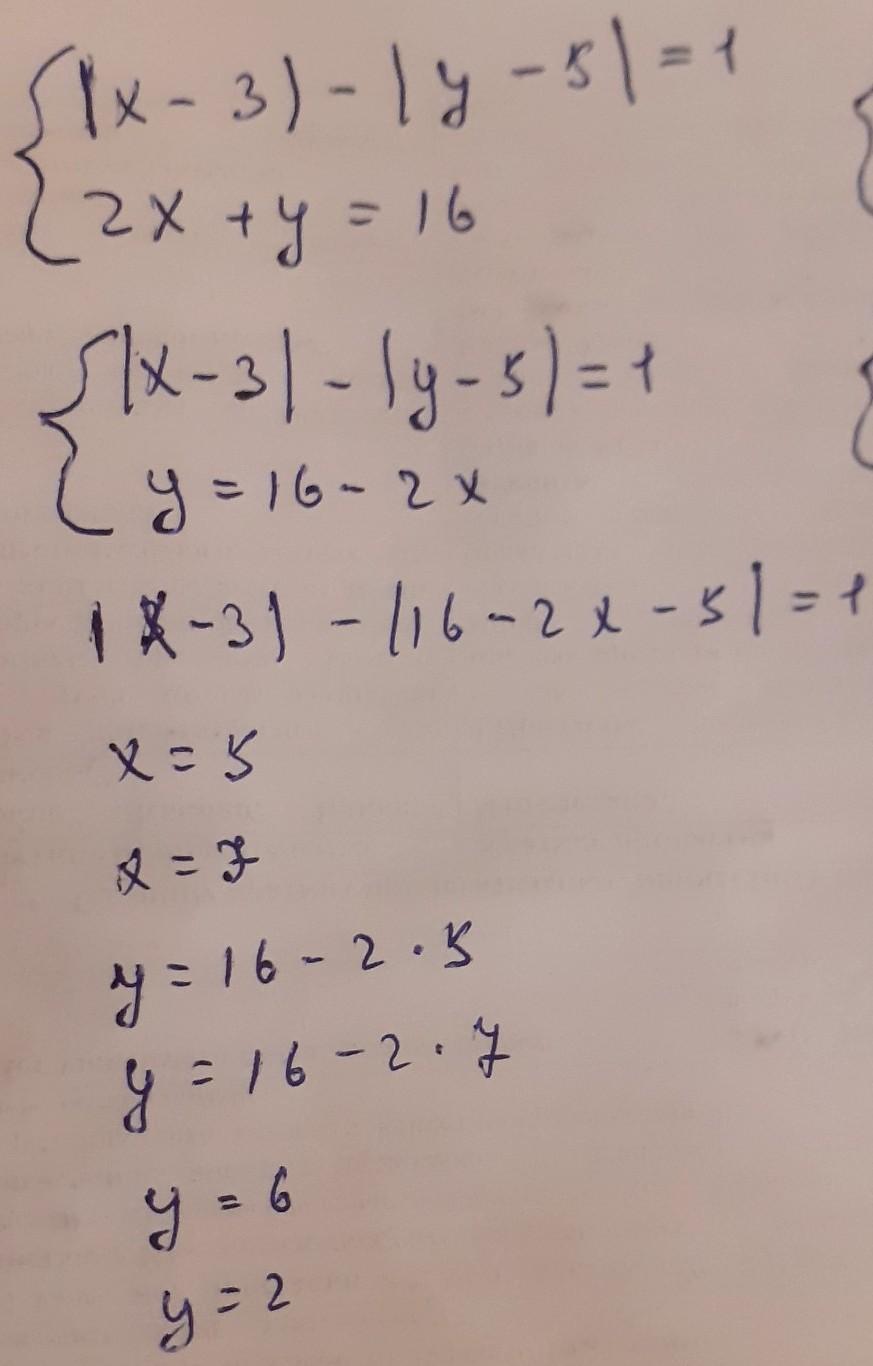 |x - 3| - |y - 5| = 1
2x + y = 16
|x - 3| - |y - 5| = 1
y = 16 - 2x
|x - 3| - |16 - 2x - 5| = 1
x = 5
x = 7
y = 16 - 2 · 5
y = 16 - 2 · 7
y = 6
y = 2